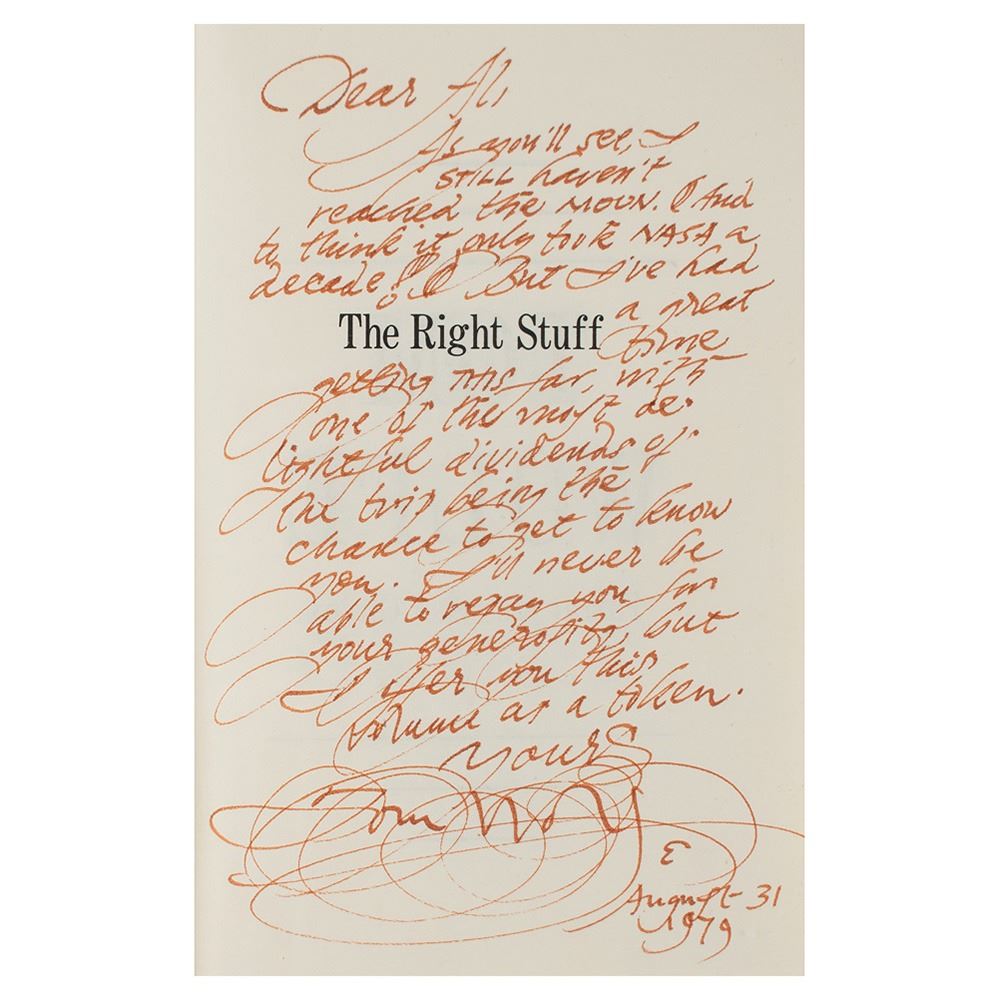 Dear Al,
As you'll see, I
STILL haven't
reached the MOON. And
to think it only took NASA a
decade! But I've had
a great
The Right Stuff time
getting THIS far, with
one of the most de-
lightful dividends of
the trip being the
chance to get to know
you. I'll never be
able to repay you for
your generosity, but
I offer you this
volume as a token.
Yours
Tom Wolf
E
August 31
1979